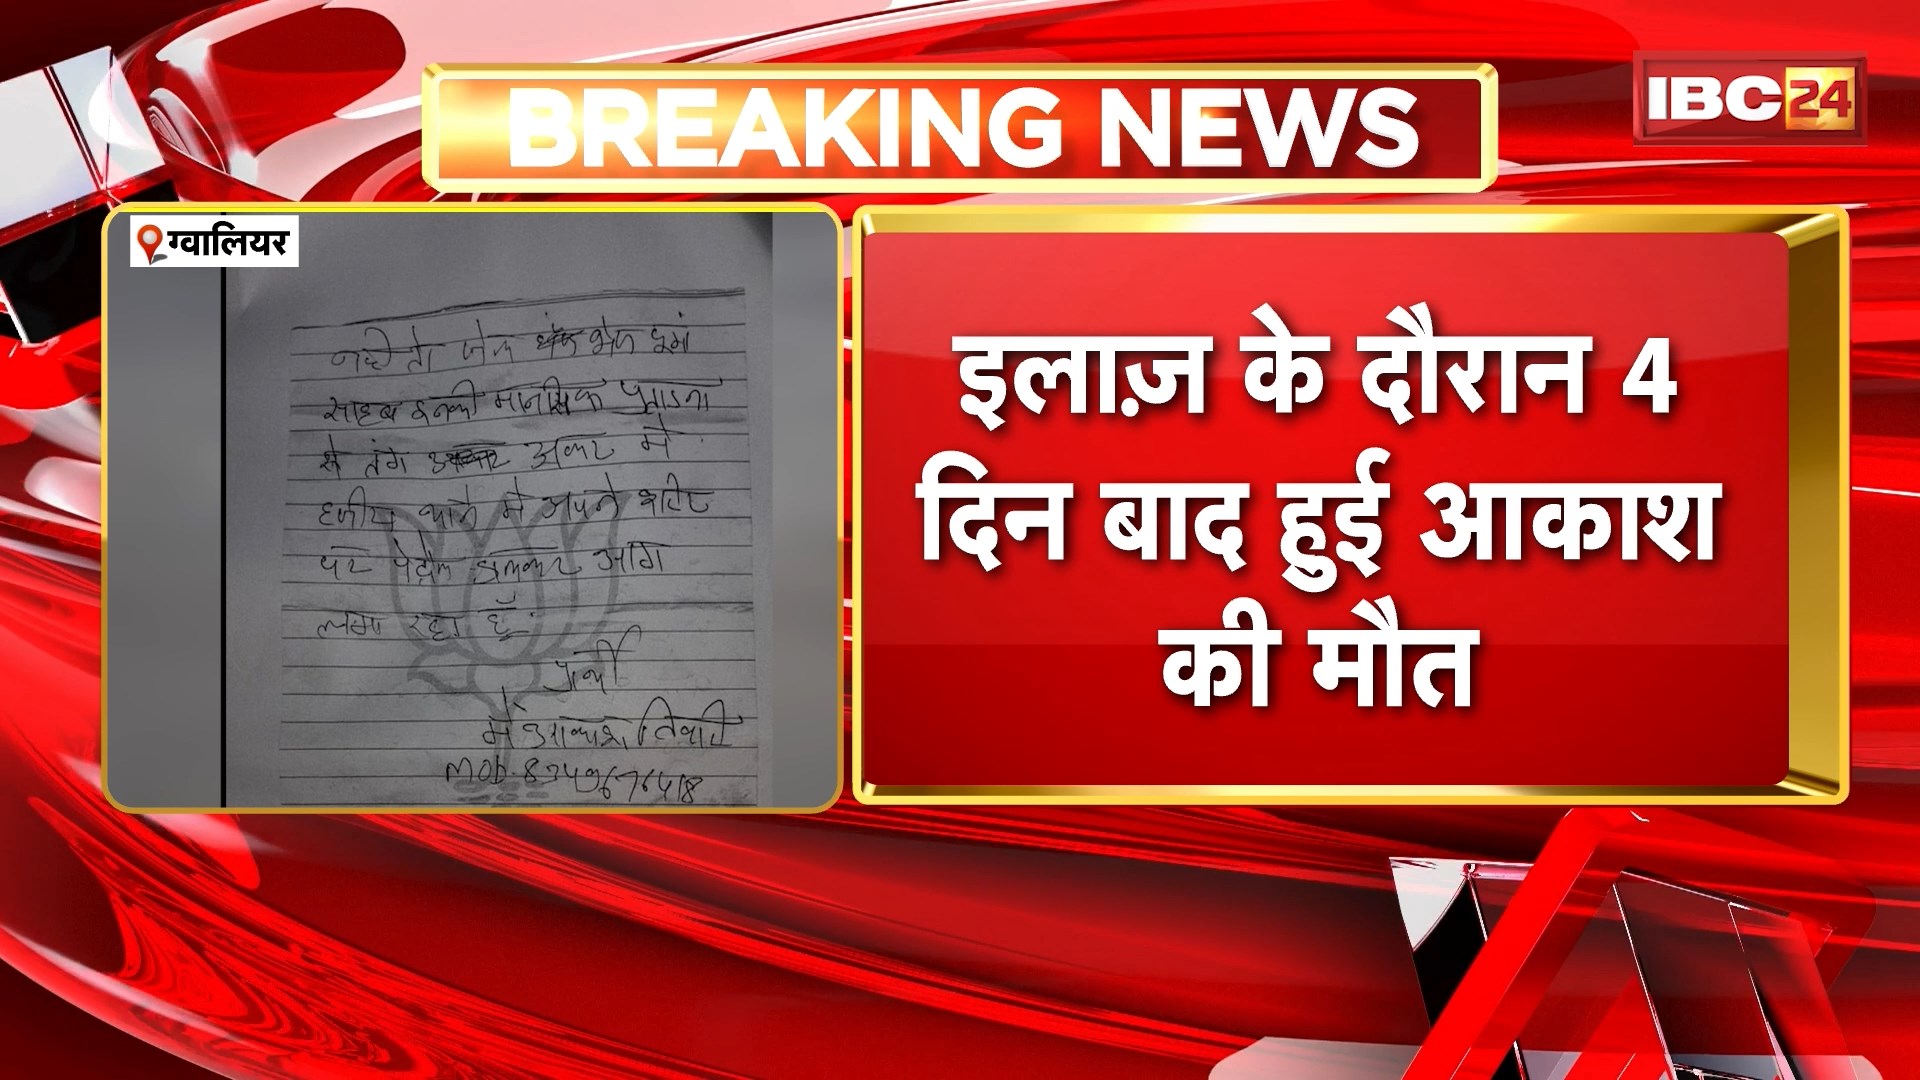 BREAKING NEWS
IBC24
ग्वालियर
नही तो जेल भेज दूंगां
साहब इनकी मानसिक प्रताडना
से तंग आकर मैं
थाने में अपने शरीर
पर पेट्रोल डालकर आग
लगा रहा हूँ.
प्रार्थी
मैं आकाश तिवारी
इलाज़ के दौरान 4
दिन बाद हुई आकाश
की मौत